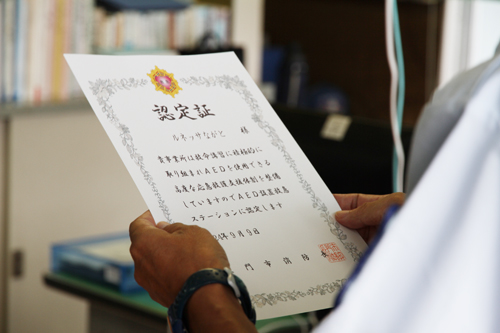 認定証
ルネッサながと 様
貴事業所は救命講習に積極的に
取り組まれAEDを使用できる
高度な応急救護支援体制を整備
していますのでAED設置救急
ステーションに認定します
4年9月9日
門市消防長